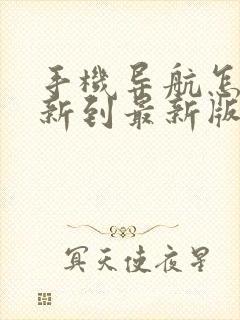 手機导航怎
新到最新版
冥天使夜星